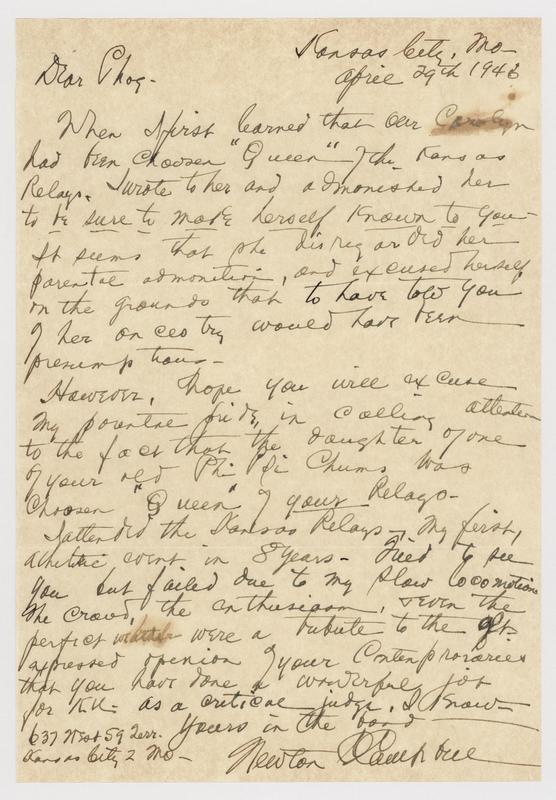 Kansas City, Mo-
April 29th 1946
Dear Phog-
When I first learned that our Carolyn
had been choosen "Queen" of the Kansas
Relays. I wrote to her and admonished her
to be sure to make herself known to you-
It seems that she disregarded her
parental admonition, and excused herself
on the grounds that to have told you
of her ancestry would have been
presumptious-
However, hope you will excuse
my parental pride, in calling attention
to the fact that the daughter of one
of your old Phi Psi Chums was
Choosen "Queen" of your Relays-
I attended the Kansas Relays- my first,
athletic event in 8 years- Tried to see
you but failed due to my slow locomotion
The crowd, the enthusiasm, & even the
perfect weather were a tribute to the oft.
expressed opinion of your Contemporaries
that you have done a wonderful job
for K.U. as a critical judge, I know-
Yours in the bond
637 West 59 Terr.
Kansas City 2 Mo-
Newton